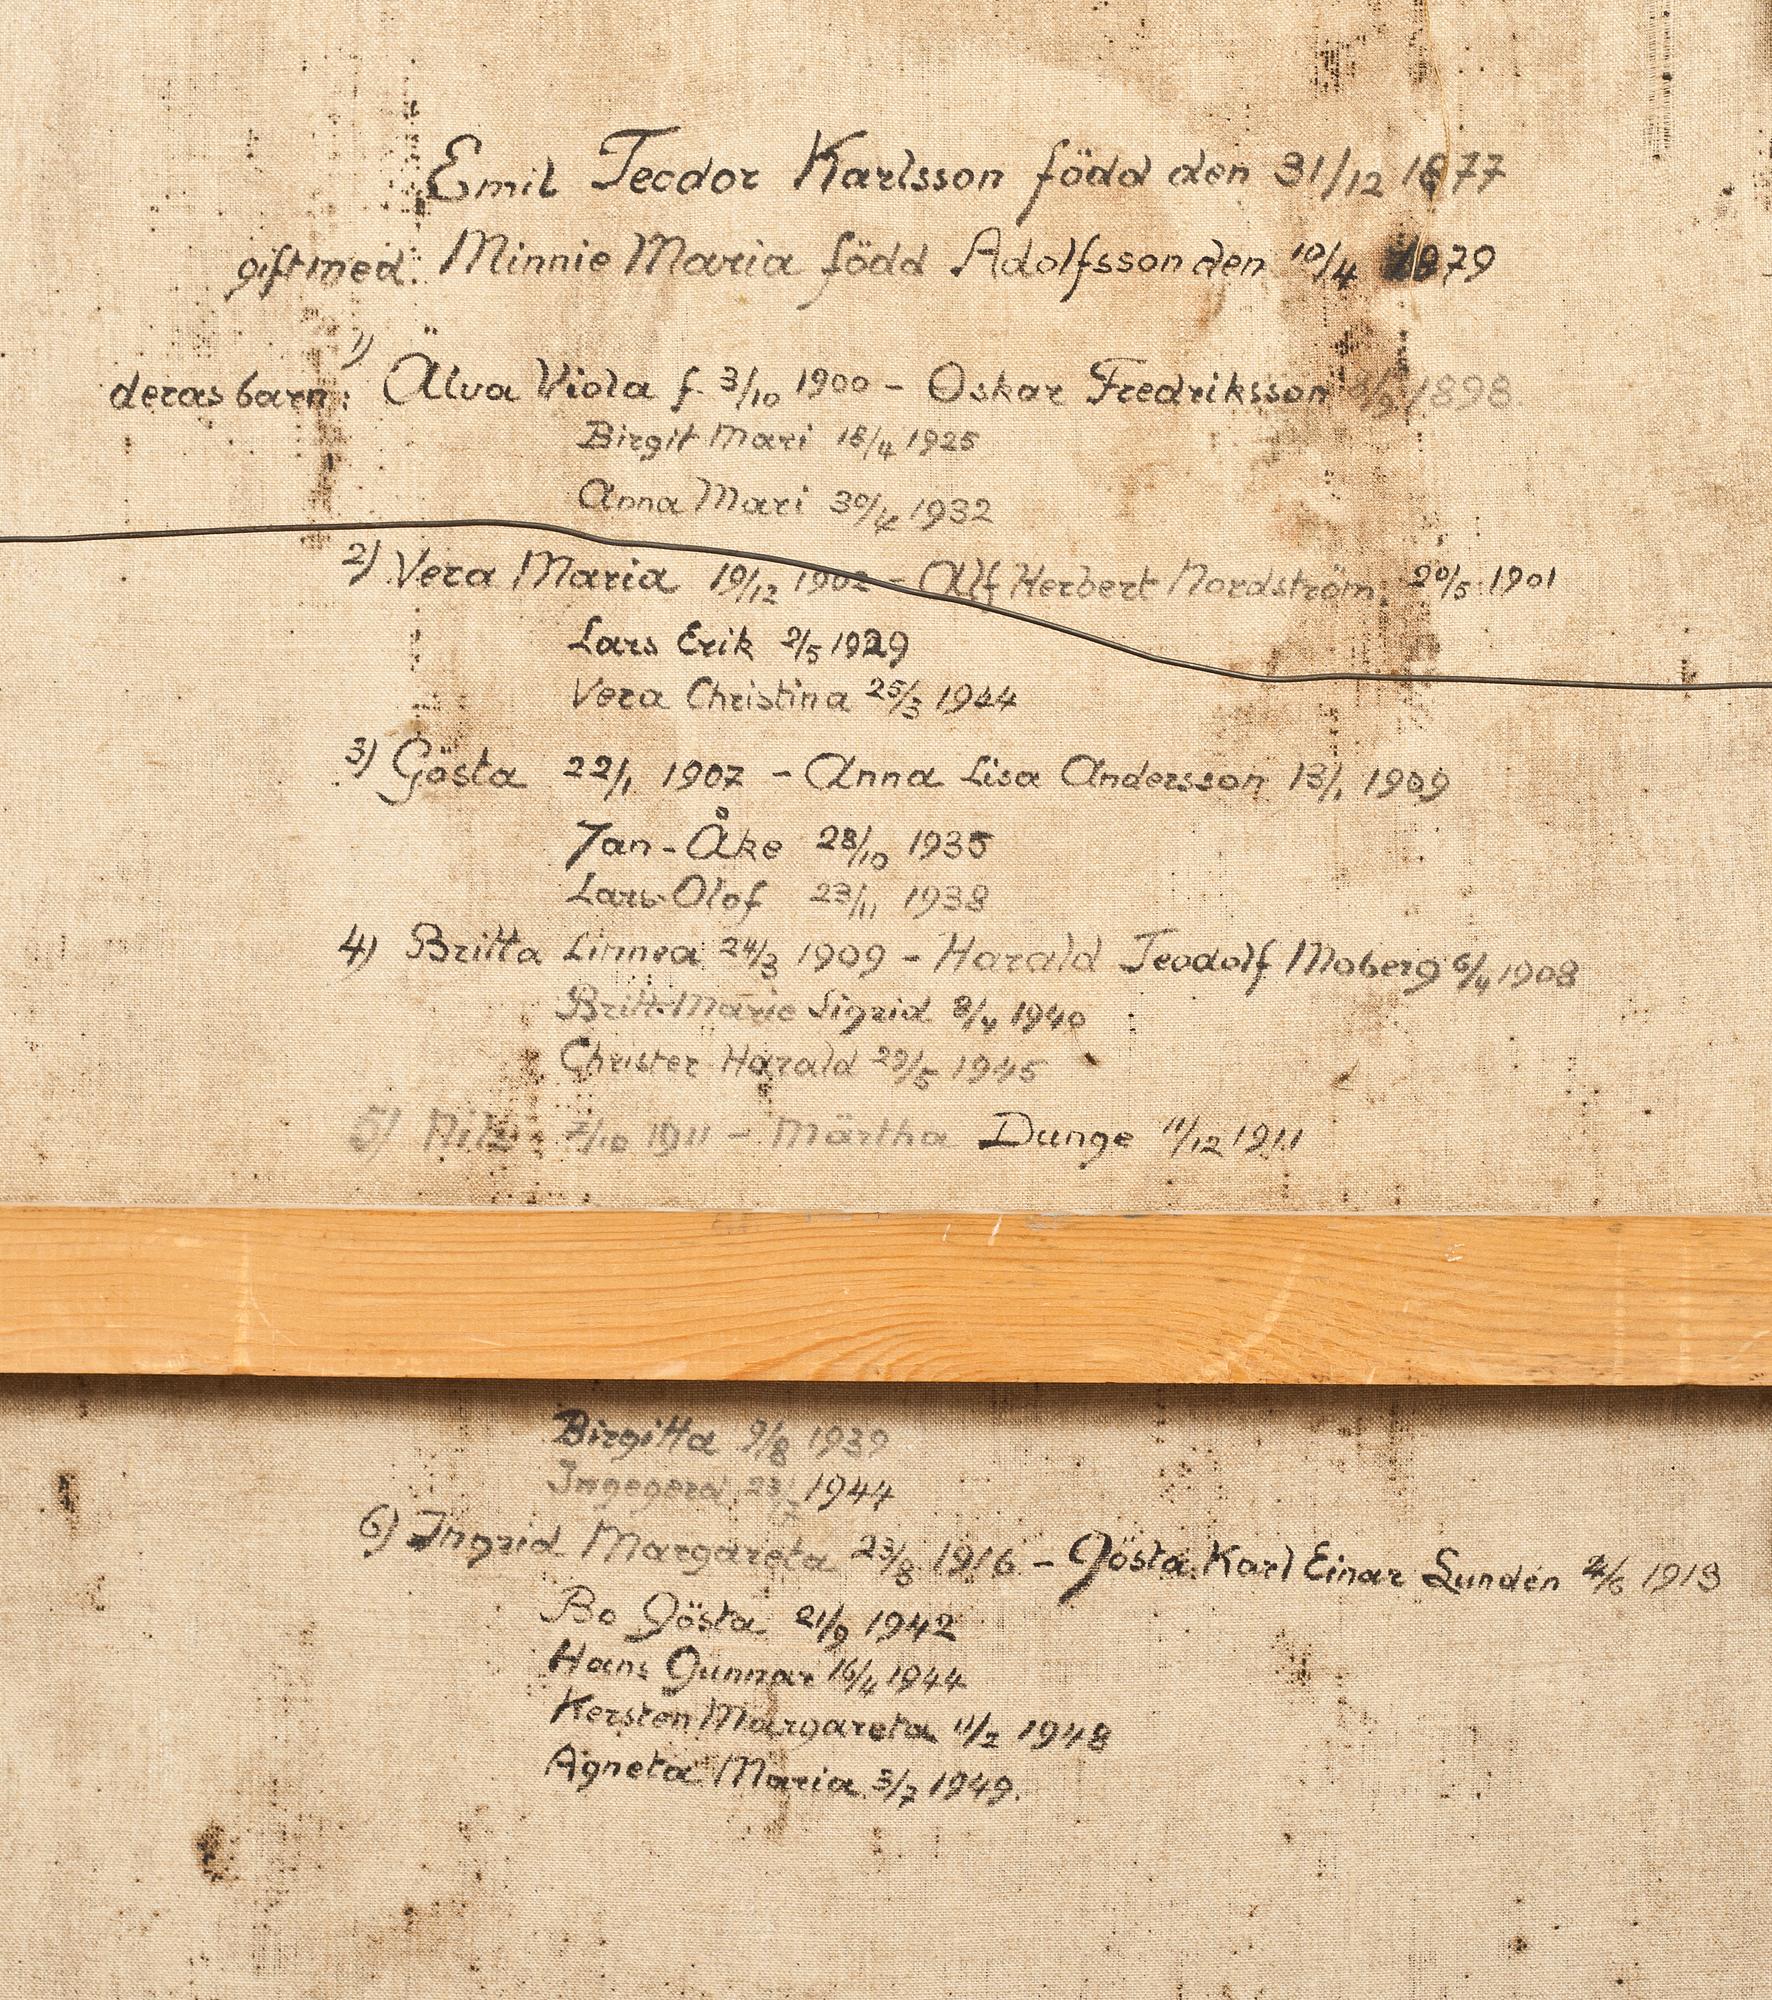 Emil Teodor Karlsson född den 31/12 1877
gift med: Minnie Maria född Adolfsson den 10/4 1879
deras barn: 1) Älva Viola f. 3/10 1900 - Oskar Fredriksson 1898
Birgit Mari 15/4 1925
Anna Mari 30/4 1932
2) Vera Maria 19/12 1902 - Alf Herbert Nordström 20/5 1901
Lars Erik 2/5 1929
Vera Christina 25/3 1944
3) Gösta 22/1 1907 - Anna Lisa Andersson 13/1 1909
Jan-Åke 28/10 1935
Lars-Olof 23/11 1938
4) Britta Linnea 24/3 1909 - Harald Teodolf Moberg 6/4 1908
Britt-Marie Sigrid 8/4 1940
Christer Harald 29/5 1945
5) 1911 - Märtha Dunge 11/12 1911
Birgitta 9/8 1939
Ingegerd 1944
6) Ingrid Margareta 23/8 1916 - Gösta Karl Einar Lundén 1913
Bo Gösta 21/9 1942
Hans Gunnar 16/4 1944
Kersten Margareta 11/2 1948
Agneta Maria 3/7 1949.